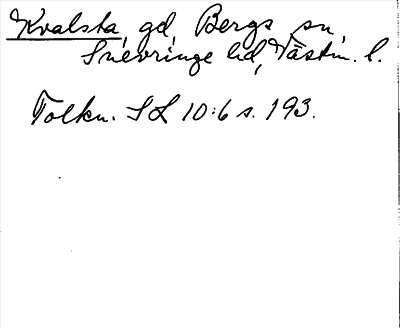 Kvalsta, gd, Bergs sn,
Snevringe hd, Västm. l.
Tolkn. SL 10:6 s. 193.